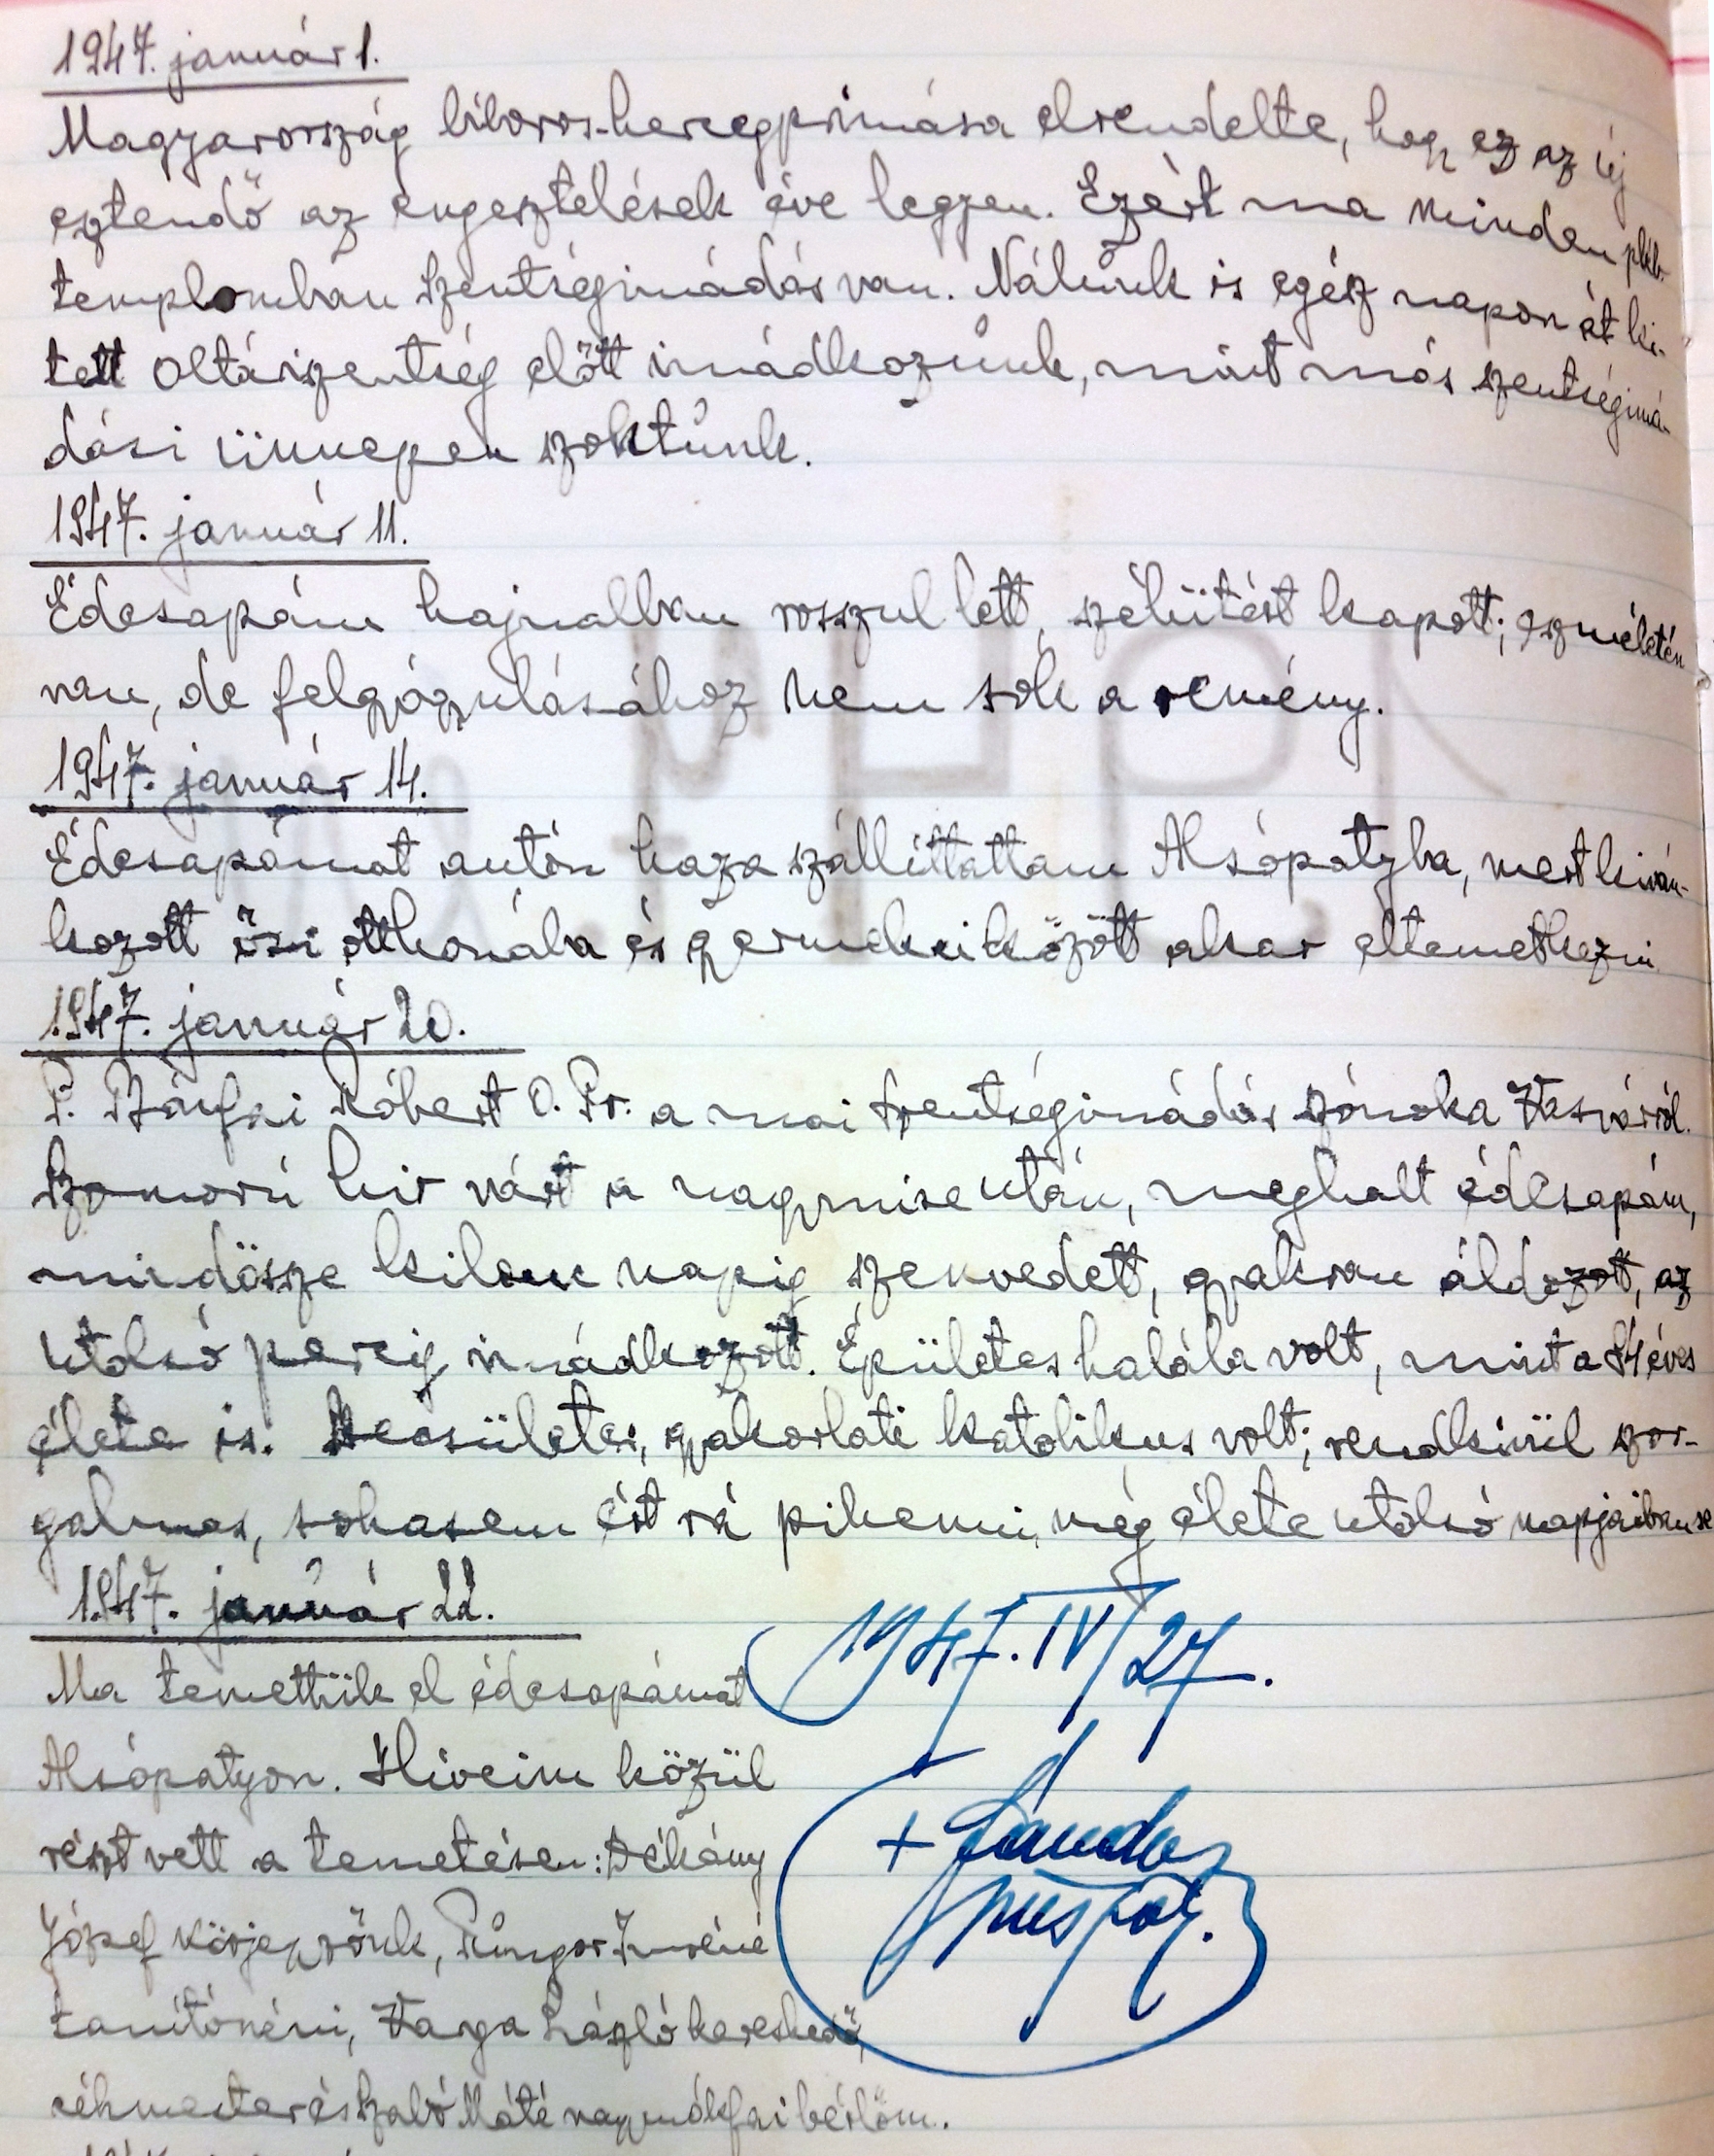 1947. január 1.
Magyarország biboros-hercegprimása elrendelte, hogy ez az új
esztendő az engesztelések éve legyen. Ezért ma minden pléb.
templomban Szentségimádás van. Nálunk is egész napon át ki-
tett Oltáriszentség előtt imádkozunk, mint más szentségimá-
dási ünnepen szoktunk.
1947. január 11.
Édesapám hajnalban rosszul lett, szélütést kapott; eszméletén
van, de felgyógyulásához nem sok a remény.
1947. január 14.
Édesapámat autón haza szállíttattam Alsópatyba, mert kiván-
kozott ősi otthonába és gyermekei között akar eltemetkezni
1947. január 20.
P. Bánfai Róbert O. Pr. a mai szentségimádás szónoka Vasvárról.
Szomorú hir várt a nagymise után, meghalt édesapám,
mindösze kilenc napig szenvedett, gyakran áldozott, az
utolsó percig imádkozott. Épületes halála volt, mint a 84 éves
élete is. Becsületes, gyakorlati katolikus volt; rendkivül szor-
galmas, sohasem ért rá pihenni, még élete utolsó napjaiban se
1947. január 22.
Ma temettük el édesapámat
Alsópatyon. Hiveim közül
részt vett a temetésen: Dékány
József körjegyzőnk, Pungor Imréné
tanítónéni, Varga László kereskedő,
céhmester és Szabó Máté nagymákfai bérlőm.
1947. IV/27.
+ Sándor
püspök.